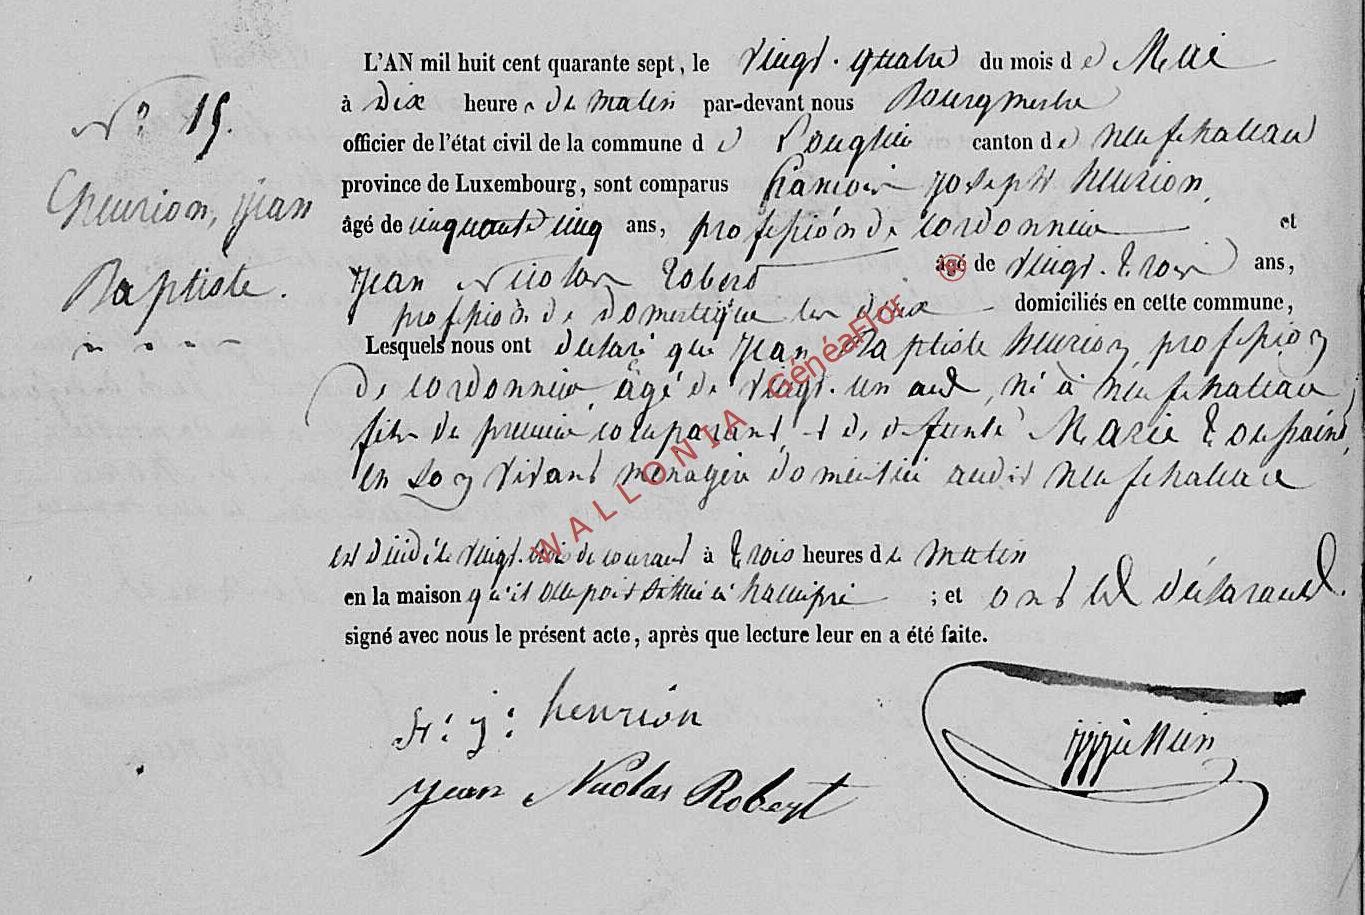 L'AN mil huit cent quarante sept, le vingt-quatre du mois de Mai
à dix heures du matin par-devant nous Bourgmestre
officier de l'état civil de la commune de Longlier canton de neufchateau
province de Luxembourg, sont comparus francois joseph henrion,
âgé de cinquante cinq ans, profession de cordonnier et
Jean Nicolas Robert âgé de vingt-trois ans,
profession de domestique les deux domiciliés en cette commune,
Lesquels nous ont déclaré que Jean Baptiste henrion profession
de cordonnier, âgé de vingt-un ans, né à neufchateau
fils du premier comparant, et de defunte Marie Toussaint,
en son vivant menagère domiciliée audit neufchateau
est décédé le vingt-trois du courant à trois heures du matin
en la maison qu'il occupoit située à hamipré ; et ont les déclarants
signé avec nous le présent acte, après que lecture leur en a été faite.
N° 15.
henrion, jean
Baptiste.
fr: j: henrion
jean Nicolas Robert
WALLONIA GénéaFlor ®